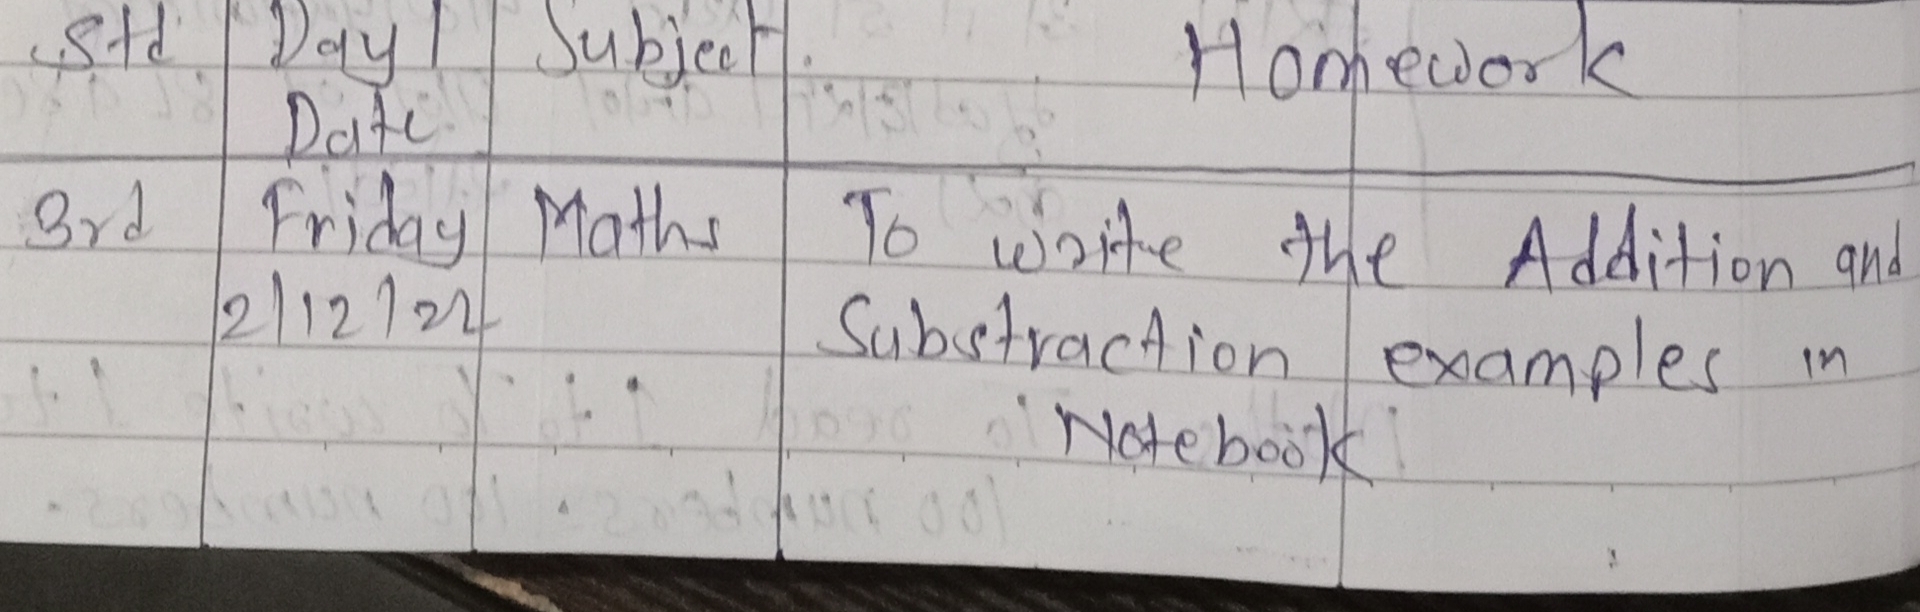 Std Day/ Subject. Homework
Date
3rd Friday Maths To write the Addition and
2/12/22 Substraction examples in
Notebook